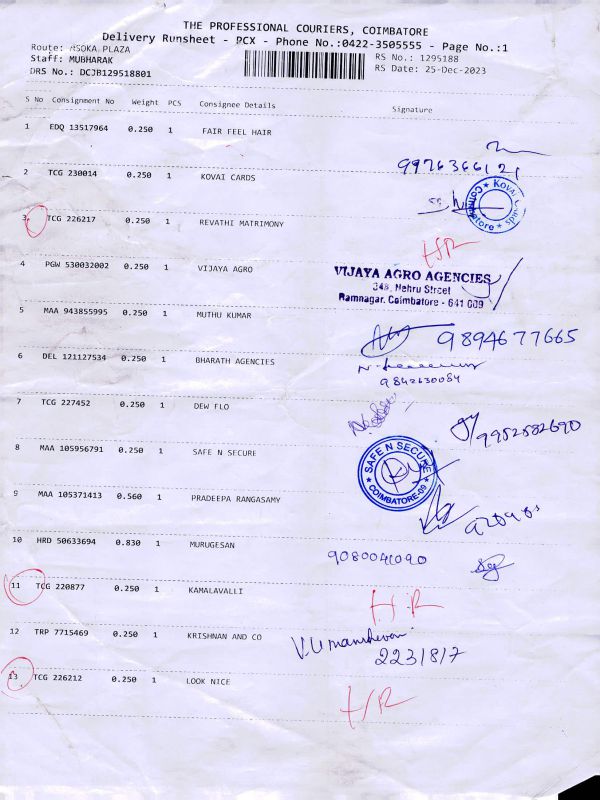 THE PROFESSIONAL COURIERS, COIMBATORE
Delivery Runsheet - PCX - Phone No.:0422-3505555 - Page No.:1
Route: ASOKA PLAZA
RS No.: 1295188
Staff: MUBHARAK
RS Date: 25-Dec-2023
DRS No.: DCJB129518801
S No Consignment No Weight PCS Consignee Details Signature
1 EDQ 13517964 0.250 1 FAIR FEEL HAIR
9976366121
2 TCG 230014 0.250 1 KOVAI CARDS
3 TCG 226217 0.250 1 REVATHI MATRIMONY
4 PGW 530032002 0.250 1 VIJAYA AGRO
VIJAYA AGRO AGENCIES
348, Nehru Street
Ramnagar, Coimbatore - 641 009
5 MAA 943855995 0.250 1 MUTHU KUMAR
9894677665
6 DEL 121127534 0.250 1 BHARATH AGENCIES
9842630084
7 TCG 227452 0.250 1 DEW FLO
9952582690
8 MAA 105956791 0.250 1 SAFE N SECURE
SAFE N SECURE
COIMBATORE-09
9 MAA 105371413 0.560 1 PRADEEPA RANGASAMY
10 HRD 50633694 0.830 1 MURUGESAN
9080041090
11 TCG 220877 0.250 1 KAMALAVALLI
H.R
12 TRP 7715469 0.250 1 KRISHNAN AND CO
2231817
13 TCG 226212 0.250 1 LOOK NICE
HR